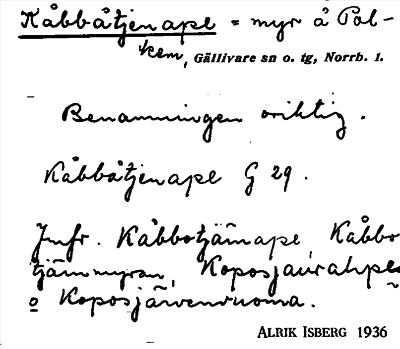 Kåbbåtjenape = myr å Pol-
kem, Gällivare sn o. tg, Norrb. l.
Benämningen oriktig.
Kåbbåtjenape G 29.
Jmfr. Kåbbotjärnape, Kåbbo
tjärnmyran, Koposjaurahpe
o Koposjärvenvuoma.
ALRIK ISBERG 1936